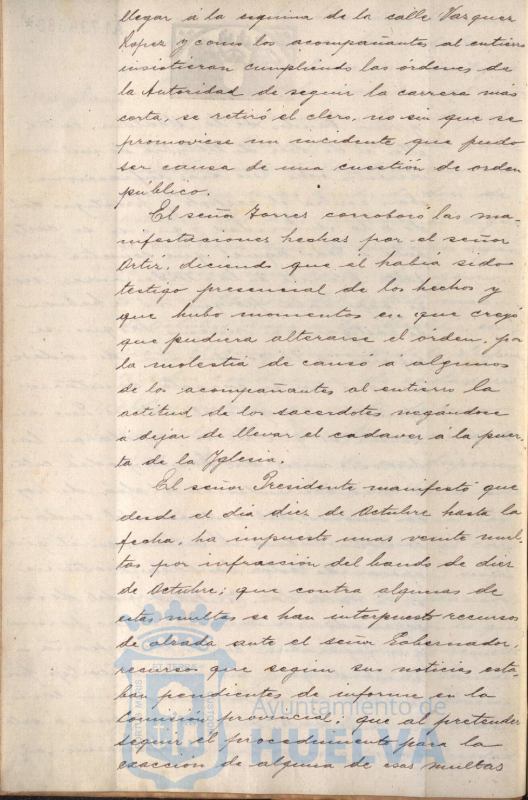 llegar á la esquina de la calle Vazquez
Lopez y como los acompañantes al entierro
insistieran cumpliendo las órdenes de
la Autoridad de seguir la carrera mas
corta, se retiró el clero, no sin que se
promoviese un incidente que pudo
ser causa de una cuestión de orden
público.
El señor Torres corroboró las ma-
nifestaciones hechas por el señor
Ortiz, diciendo que él habia sido
testigo presencial de los hechos y
que hubo momentos en que creyó
que pudiera alterarse el órden, por
la molestia de causó á algunos
de los acompañantes al entierro la
actitud de los sacerdotes negándose
á dejar de llevar el cadaver á la puer-
ta de la Iglesia.
El señor Presidente manifestó que
desde el dia diez de Octubre hasta la
fecha, ha impuesto unas veinte mul-
tas por infracción del bando de diez
de Octubre; que contra algunas de
estas multas se han interpuesto recursos
de alzada ante el señor Gobernador,
recursos que segun sus noticias esta-
ban pendientes de informe en la
Comisión provincial; que al pretender
seguir el procedimiento para la
exacción de alguna de esas multas
Ayuntamiento de
HUELVA